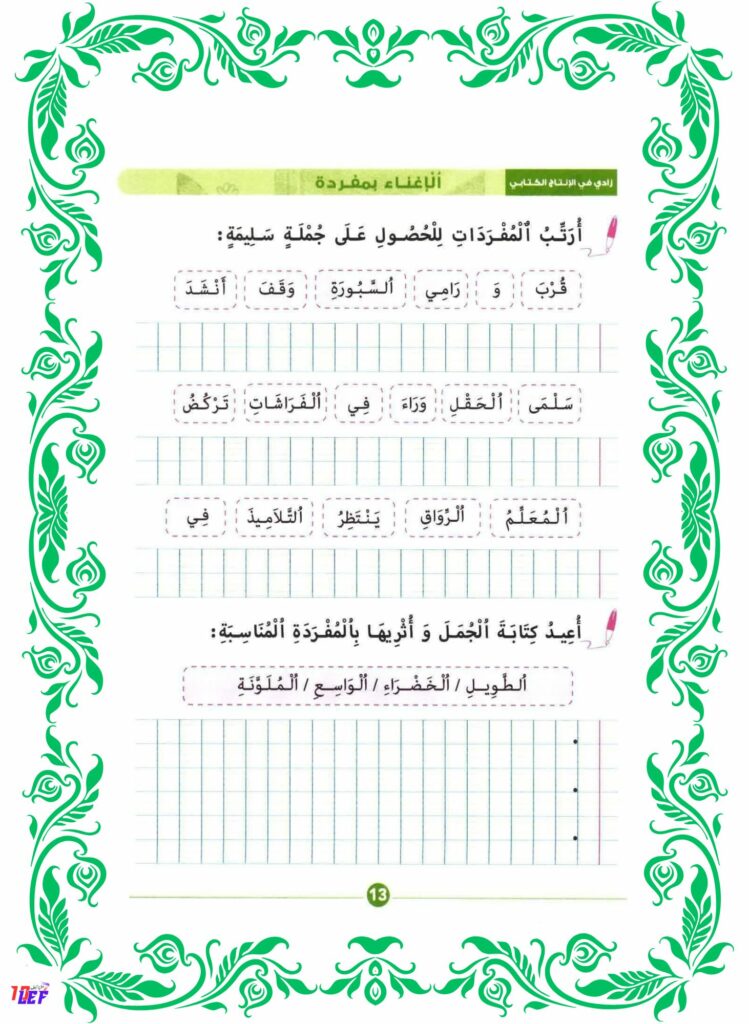 زادي في الإنتاج الكتابي
اَلْإِغْنَاء بمفردة
أُرَتِّبُ ٱلْمُفْرَدَاتِ لِلْحُصُولِ عَلَى جُمْلَةٍ سَلِيمَةٍ:
قُرْبَ وَ رَامِي اُلسَّبُورَةِ وَقَفَ أَنْشَدَ
سَلْمَى اُلْحَقْلِ وَرَاءَ فِي اُلْفَرَاشَاتِ تَرْكُضُ
اُلْمُعَلِّمُ اُلْرِّوَاقِ يَنْتَظِرُ اُلتَّلَامِيذَ فِي
أُعِيدُ كِتَابَةَ اُلْجُمَلَ وَ أُثْرِيهَا بِاُلْمُفْرَدَةِ اُلْمُنَاسِبَةِ:
اُلطَّوِيلِ / اُلْخَضْرَاءِ / اُلْوَاسِعِ / اُلْمُلَوَّنَةِ
13